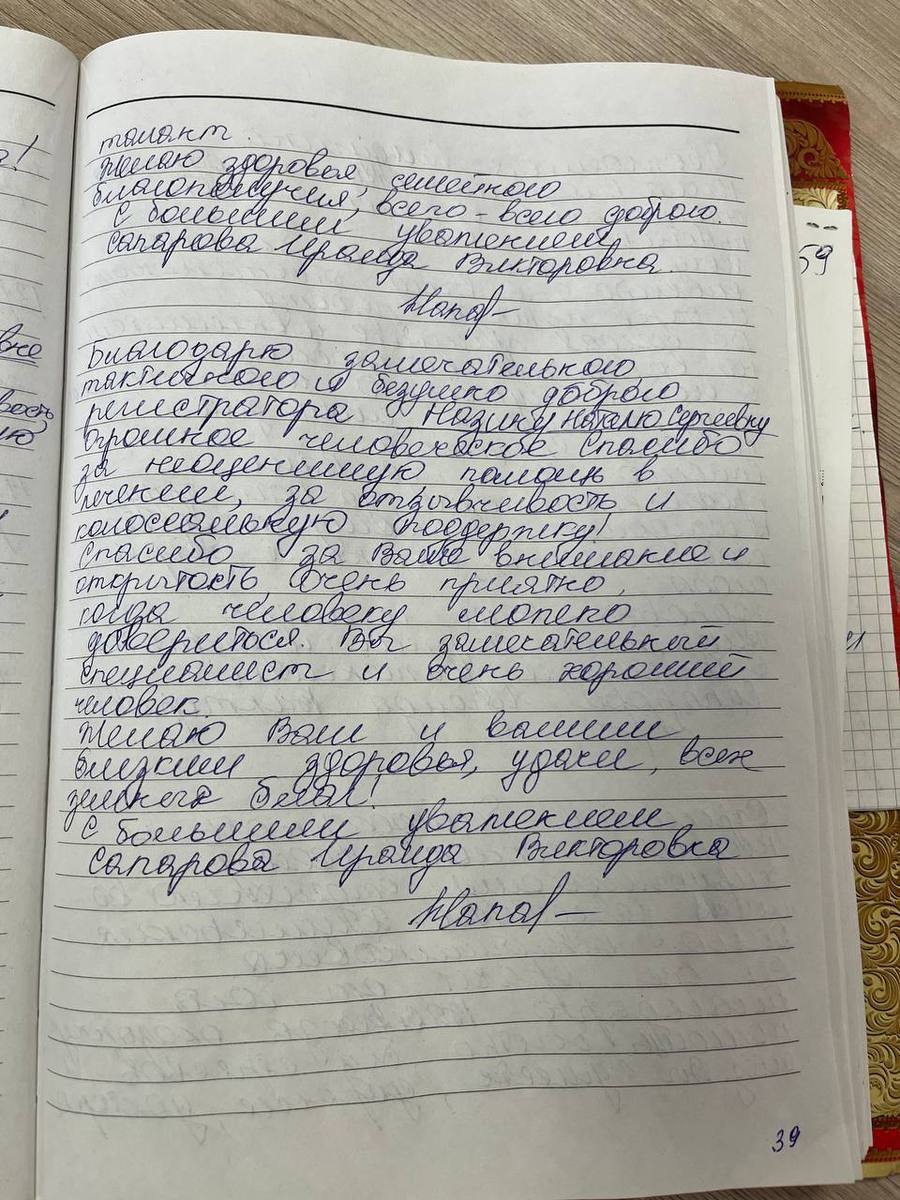 талант.
Желаю здоровья, семейного
благополучия, всего-всего доброго.
С большим уважением
Сапарова Ираида Викторовна.
Благодарю замечательного
тактичного и безушно доброго
регистратора Назину Наталю Сергеевну
Огромное человеческое Спасибо
за неоценимую помощь в
лечении, за отзывчивость и
колоссальную поддержку!
Спасибо за Ваше внимание и
открытость, Очень приятно,
когда человеку можно
довериться. Вы замечательный
специалист и очень хороший
человек.
Желаю Вам и вашим
близким здоровья, удачи, всех
земных благ!
С большим уважением
Сапарова Ираида Викторовна
39
59